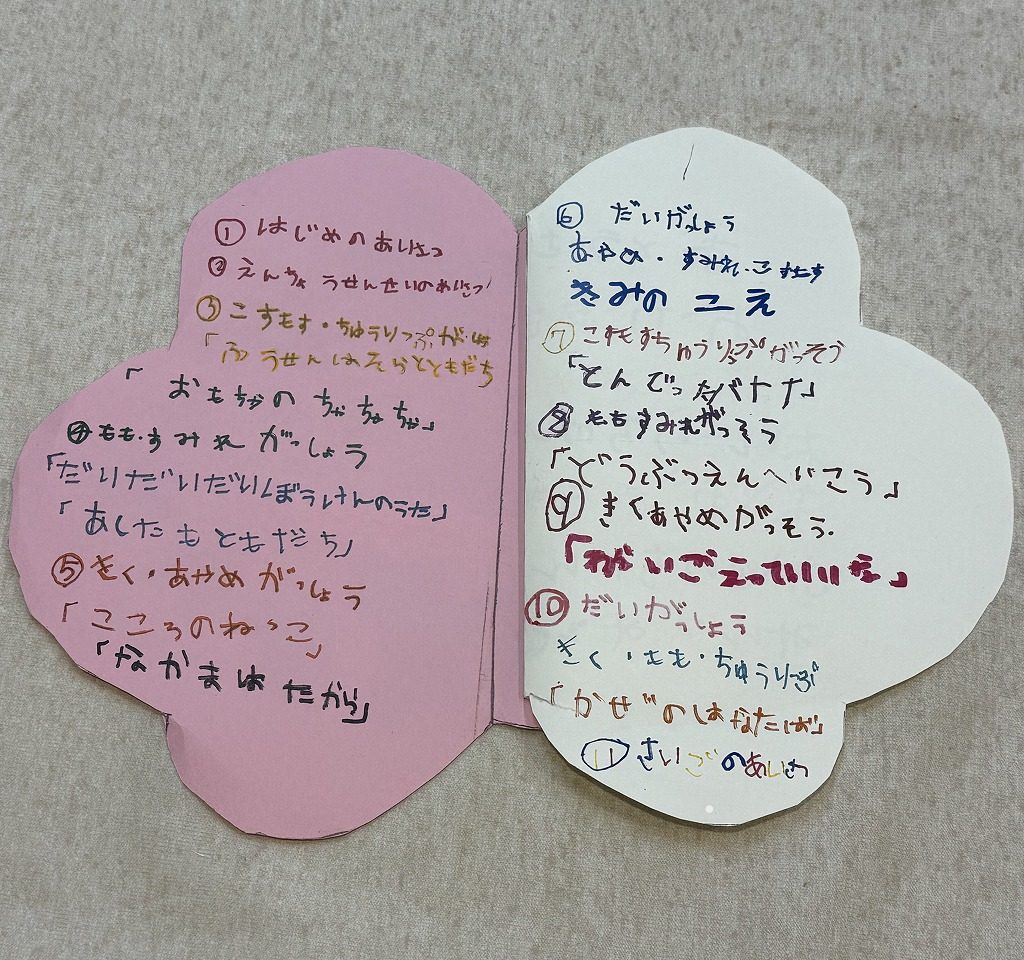 ① はじめのあいさつ
② えんちょうせんせいのあいさつ
③ こすもす・ちゅうりっぷ
「ふうせんはそらとともだち
「おもちゃのちゃちゃちゃ」
④ もも・すみれ がっしょう
「だいだいだいくぼうけんのうた」
「あしたもともだち」
⑤ きく・あやめ がっしょう
「こころのねっこ」
「なかまはたから」
⑥ だいがっしょう
あやめ・すみれ・こすもす
きみのこえ
⑦ こすもすちゅうりっぷがっそう
「とんでったバナナ」
⑧ ももすみれがっそう
「どうぶつえんへいこう」
⑨ きくあやめがっそう.
⑩ だいがっしょう
きく・もも・ちゅうりっぷ
「かぜのはなたば」
⑪ さいごのあいさつ